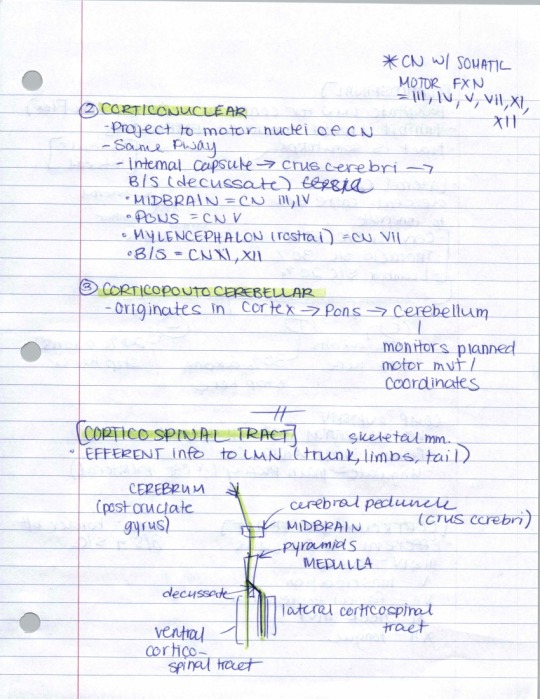 * CN W/ SOMATIC
MOTOR FXN
= III, IV, V, VII, XI,
XII
② CORTICONUCLEAR
- Project to motor nuclei of CN
- Same Pway
- Internal capsule → crus cerebri →
B/S (decussate)
• MIDBRAIN = CN III, IV
• PONS = CN V
• MYLENCEPHALON (rostral) = CN VII
• B/S = CN XI, XII
③ CORTICOPONTOCEREBELLAR
- Originates in cortex → Pons → Cerebellum
monitors planned
motor mvt /
coordinates
CORTICOSPINAL TRACT
skeletal mm.
• EFFERENT info to LMN (trunk, limbs, tail)
CEREBRUM
(postcruciate
gyrus)
cerebral peduncle
(crus cerebri)
MIDBRAIN
pyramids
MEDULLA
decussate
lateral corticospinal
tract
ventral
cortico-
spinal tract